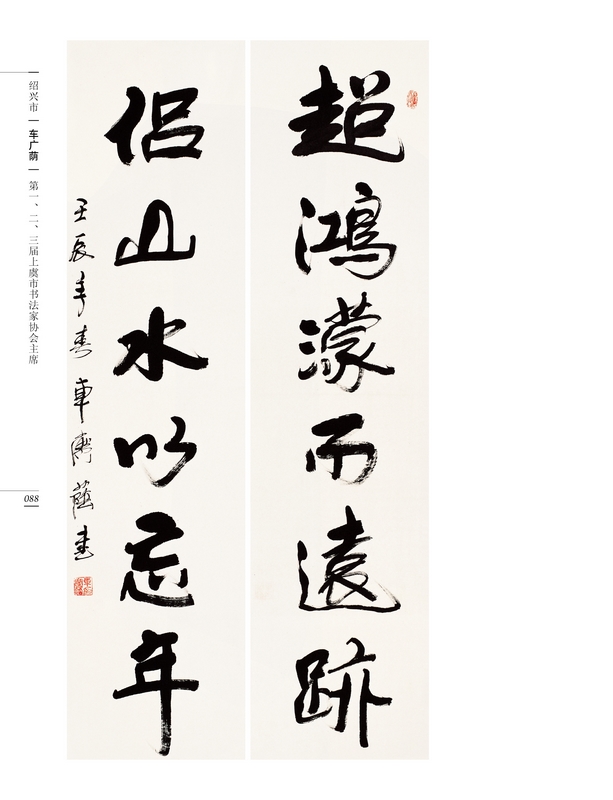 超鸿濛而遠跡
侣山水以忘年
壬辰年春車廣蔭書
绍兴市 | 车广荫 | 第一、二、三届上虞市书法家协会主席
088